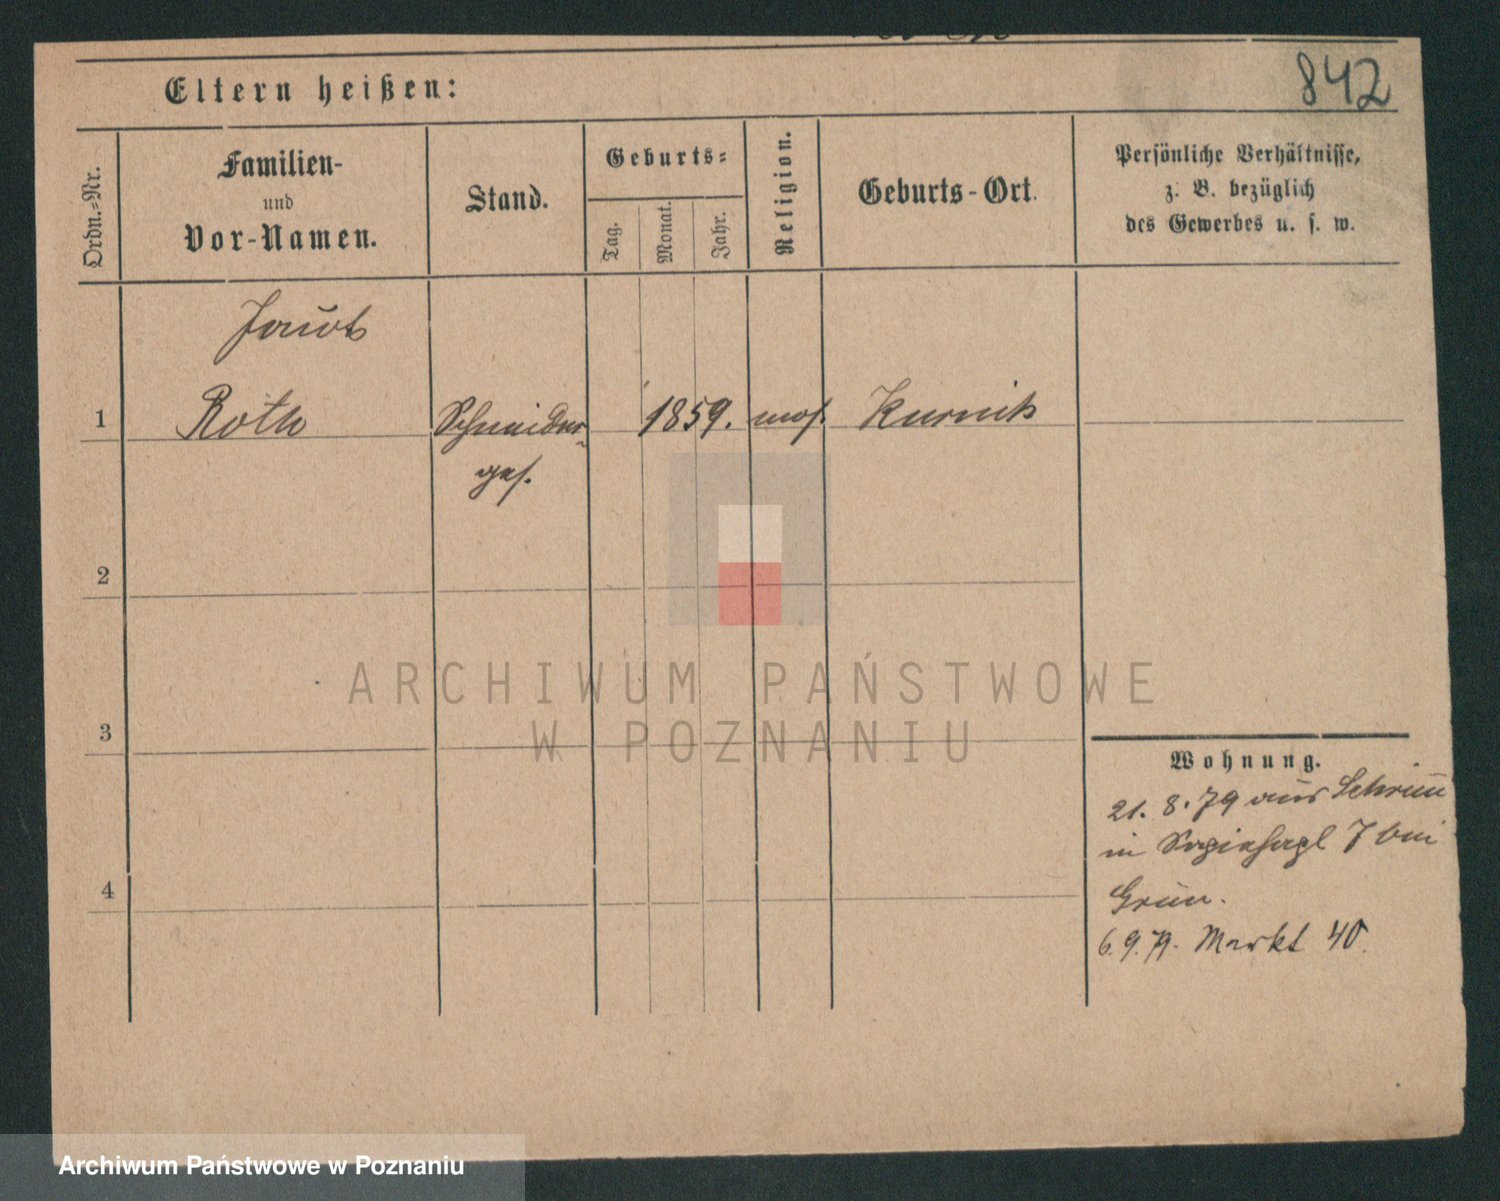 842
Eltern heißen:
Ordn.-Nr.
Familien-
und
Vor-Namen.
Stand.
Geburts-
Tag.
Monat.
Jahr.
Religion.
Geburts-Ort.
Persönliche Verhältnisse,
z. B. bezüglich
des Gewerbes u. s. w.
1
Roth
Schneider-
ges.
1859.
mos.
Kurnik
2
3
4
Wohnung.
21. 8. 79 aus Schrim
in 7 bei
Grün.
6. 9. 79. Markt 40.
ARCHIWUM PAŃSTWOWE
W POZNANIU
Archiwum Państwowe w Poznaniu